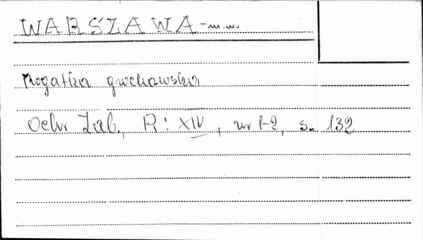 WARSZAWA - m. st.
rogatka grochowska
Ochr. Zab., R: XIV, nr 1-2, s. 132